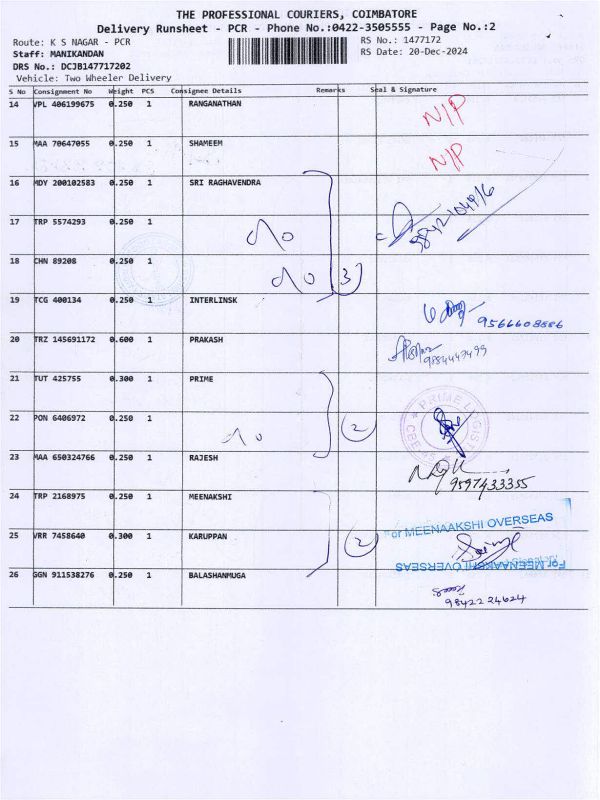 THE PROFESSIONAL COURIERS, COIMBATORE
Delivery Runsheet - PCR - Phone No.:0422-3505555 - Page No.:2
Route: K S NAGAR - PCR RS No.: 1477172
Staff: MANIKANDAN RS Date: 20-Dec-2024
DRS No.: DCJB147717202
Vehicle: Two Wheeler Delivery
S No Consignment No Weight PCS Consignee Details Remarks Seal & Signature
14 VPL 406199675 0.250 1 RANGANATHAN N/P
15 MAA 70647055 0.250 1 SHAMEEM N/P
16 MDY 200102583 0.250 1 SRI RAGHAVENDRA
17 TRP 5574293 0.250 1
18 CHN 89208 0.250 1 3
19 TCG 400134 0.250 1 INTERLINSK 9566608586
20 TRZ 145691172 0.600 1 PRAKASH
21 TUT 425755 0.300 1 PRIME
22 PON 6406972 0.250 1 2 PRIME LOGIST
23 MAA 650324766 0.250 1 RAJESH 9597433355
24 TRP 2168975 0.250 1 MEENAKSHI
For MEENAAKSHI OVERSEAS
25 VRR 7458640 0.300 1 KARUPPAN 2
For MEENAAKSHI OVERSEAS
26 GGN 911538276 0.250 1 BALASHANMUGA
9842224624